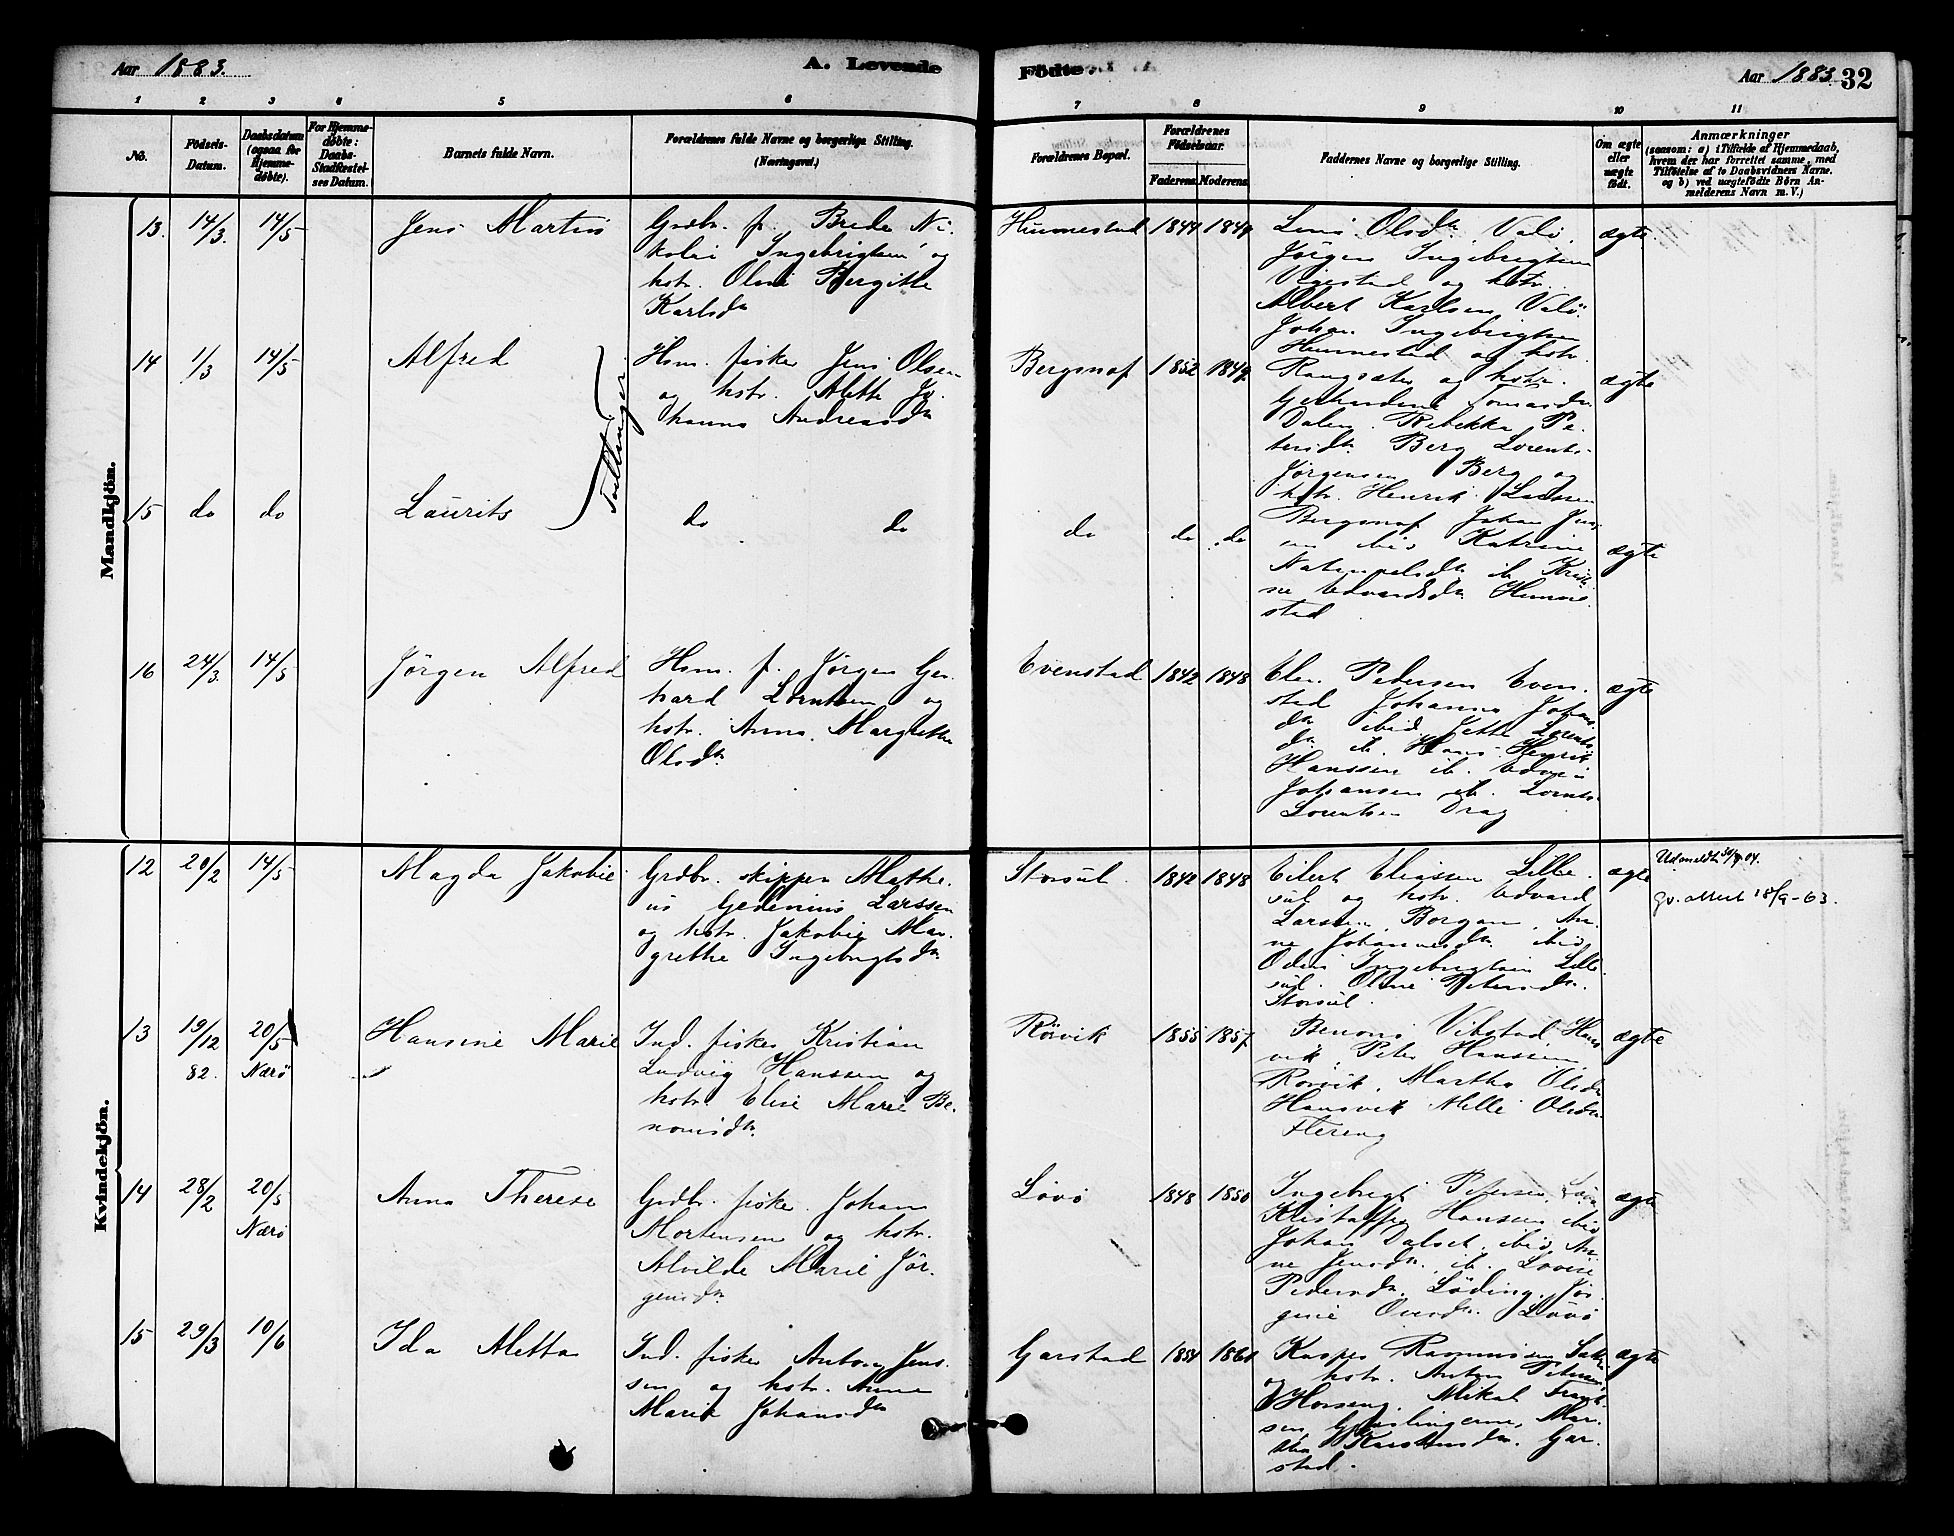 Aar 1883.
A. Levende
Födte.
Aar 1883. 32
1 2 3 4 5 6 7 8 9 10 11
No.
Födsels-
Datum.
Daabsdatum
(ogsaa for
Hjemme-
döbte).
For Hjemme-
döbte:
Daabs-
Stadfæstel-
ses Datum.
Barnets fulde Navn.
Forældrenes fulde Navne og borgerlige Stilling.
(Næringsvei.)
Forældrenes Bopæl.
Forældrenes
Födselsaar.
Faderens. Moderens.
Faddernes Navne og borgerlige Stilling.
Om ægte
eller
uægte
født.
Anmærkninger
(saasom: a) i Tilfælde af Hjemmedaab,
hvem der har forrettet samme, med
Tilføielse af to Daabsvidners Navne.
og b) ved uægtefødte Børn An-
melderens Navn m. V.)
Mandkjön.
13. 14/3. 14/5 Jens Martin
Grdbr. f. Brede Ni-
kolai Ingebrigtsen og
hstr. Oline Bergitte
Karlsdtr
Hunnestad 1844 1849
Olsdtr. Valö.
Jørgen Ingebrigtsen
og hstr.
Albert Karlsen Valö.
Johan Ingebrigtsen
Hunnestad og hstr.
ægte.
14 1/3 14/5 Alfred
Tvillinger
Hsm. fisker Jens Olsen
og hstr. Alette Jo-
hanna Andreasdtr
Bergsnof 1852 1849
og hstr.
Dalen. Rebekka Pe-
tersdtr. Berg Lorents
Jørgensen Berg og
hstr. Henrik
ægte
15 do do Laurits
do do
do do do
Bergsnof Johan Jen-
sen ibid Katrine
ib. Kristi-
ne Edvardsdtr. Hunne-
stad
ægte
16 24/3. 14/5 Jörgen Alfred
Hsm. f. Jørgen Ger-
hard Lorntsen og
hstr. Anna Margrethe
Olsdtr.
Evenstad 1842 1848
Elen Pedersen Even-
stad Johanna Johans-
dtr ibid. Jette Lorents-
dtr. ib. Hans Henrik
Hanssen ib. Edvin
Johansen ib. Lornts
Lorentsen Drag
ægte
Kvindekjön.
12 20/2 14/5 Magda Jakobie
Grdbr. skipper Mathe-
us Gedenius Larssen
og hstr. Jakobie Mar-
grethe Ingebrigtsdtr
Storsul. 1842 1848
Eilert Eliassen Lille-
sul og hstr. Edvard
Larsen Borgan, An-
ne Johannesdtr. ibid
Odin Ingebrigtsen Lille-
sul. Oline Petersdtr.
Storsul.
ægte
Udmeldt 30/9 04.
gv. attest 18/9-63.
13 19/12 82. 20/5 Nærö Hansine Marie
Ind. fisker Kristian
Ludvig Hanssen og
hstr. Elise Marie Be-
nonisdtr.
Rörvik 1855 1857
Benoni Vibstad Hans-
vik, Peter Hanssen
Rörvik. Martha Olsdtr
Hansvik Mille Olsdtr
Flereng
ægte
14 28/2 20/5 Nærö Anna Therese
Grdbr. fisker Johan
Mortensen og hstr.
Alvilde Marie Jör-
gensdtr.
Lövö 1848 1850
Ingebrigt Petersen Lövö
Kristoffer Hansen ibid
Johan Dalset. ibid. An-
ne Jensdtr. ib. Lovise
Pedersdtr. Löding. Jör-
gine Lövö
ægte
15 29/3 10/6 Ida Metta
Ind. fisker Anton Jens-
sen og hstr. Anne
Marie Johansdtr
Garstad 1854 1861
Kasper Rasmussen
og hstr. Anton Petersen
Horseng. Mikal
Mar-
tha Karstensdtr. Gar-
stad.
ægte